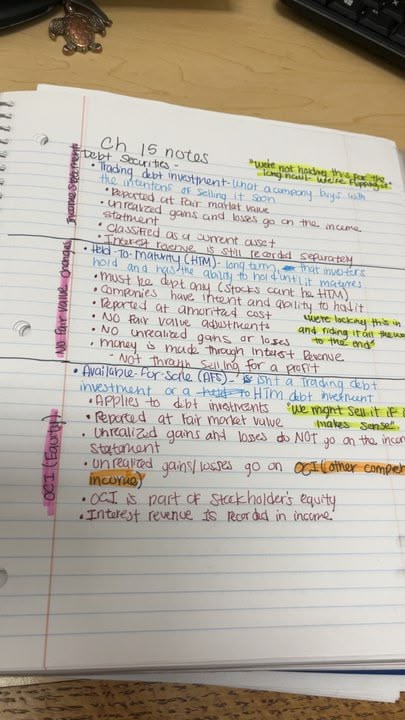 Ch 15 notes
Income statement
Debt securities -
"We're not holding this for the
long haul - we're flipping it"
• Trading debt investment - what a company buys with
the intentions of selling it soon
• Reported at Fair market value
• unrealized gains and losses go on the income
statment
• classified as a current asset
• Interest revenue is still recorded separately
No Fair value changes
• Held-To-Maturity (HTM) - long term that investors
hold and has the ability to hold until it matures
• must be dept only (stocks cant be HTM)
• companies have intent and ability to hold it
• Reported at amorited cost
• No Fair value adjustments
"we're locking this in
and riding it all the
to the end"
• No unrealized gains or losses
• money is made through Interest Revenue
- Not through selling for a profit
OCI (Equity)
• Available-For-Sale (AFS) - Isnt a Trading debt
investment or a HTM debt investment
• Applies to debt investments
"We might sell it if i
makes sense"
• Reported at Fair market value
• unrealized gains and losses do NOT go on the incom
statement
• unrealized gains/losses go on OCI (other compe
income)
• OCI is part of stockholder's equity
• Interest revenue IS recorded in income